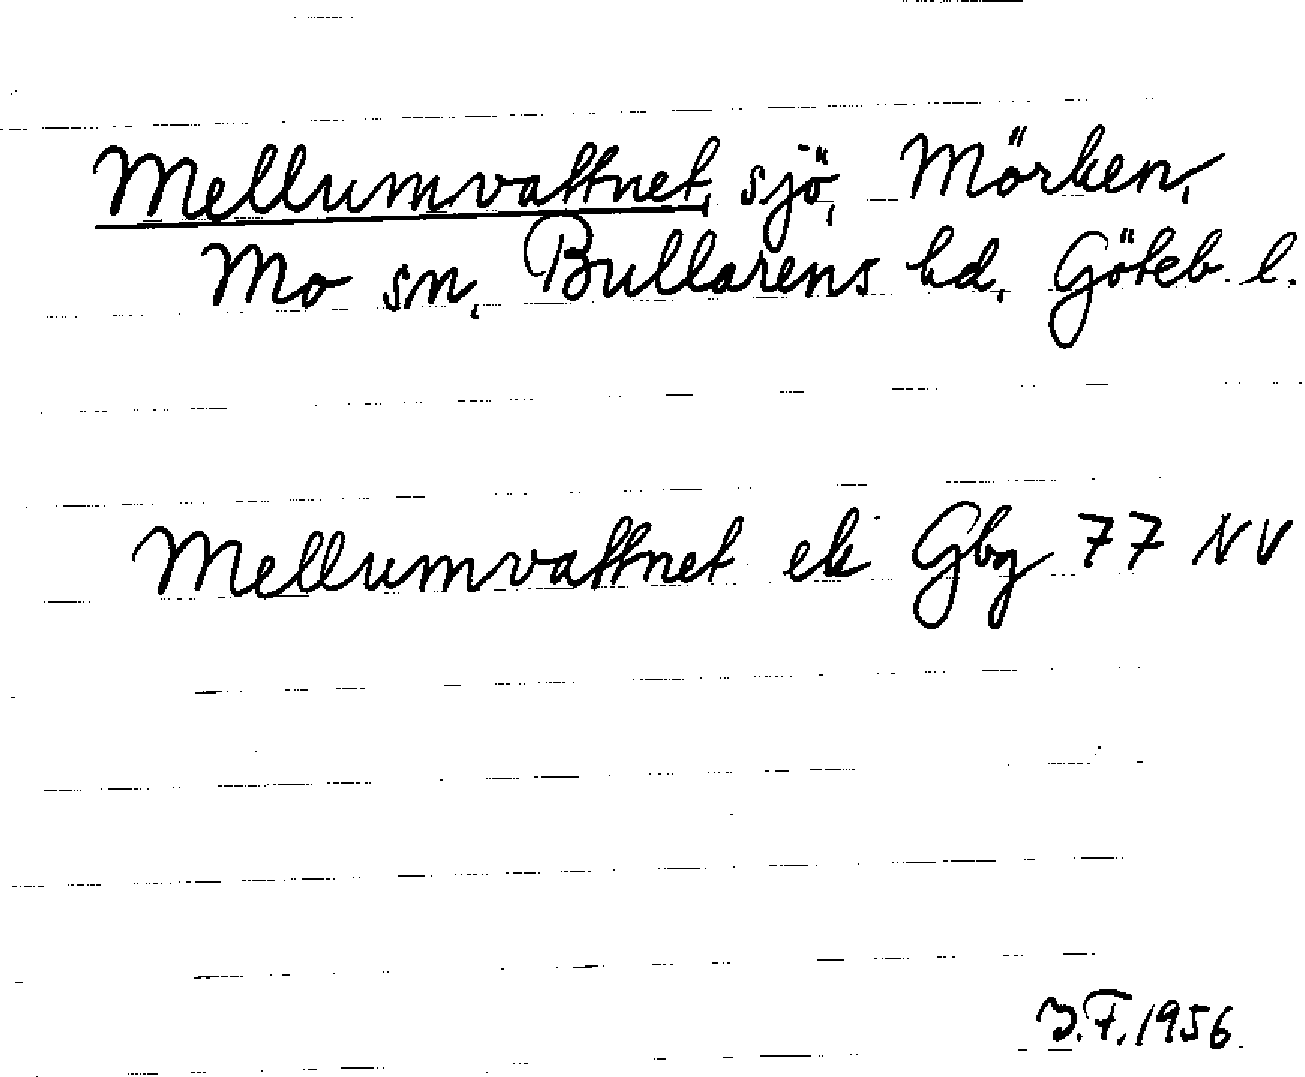 Mellumvattnet, sjö, Mörken,
Mo sn, Bullarens hd, Göteb. l.
Mellumvattnet ek Gbg 77 NV
J.F. 1956.